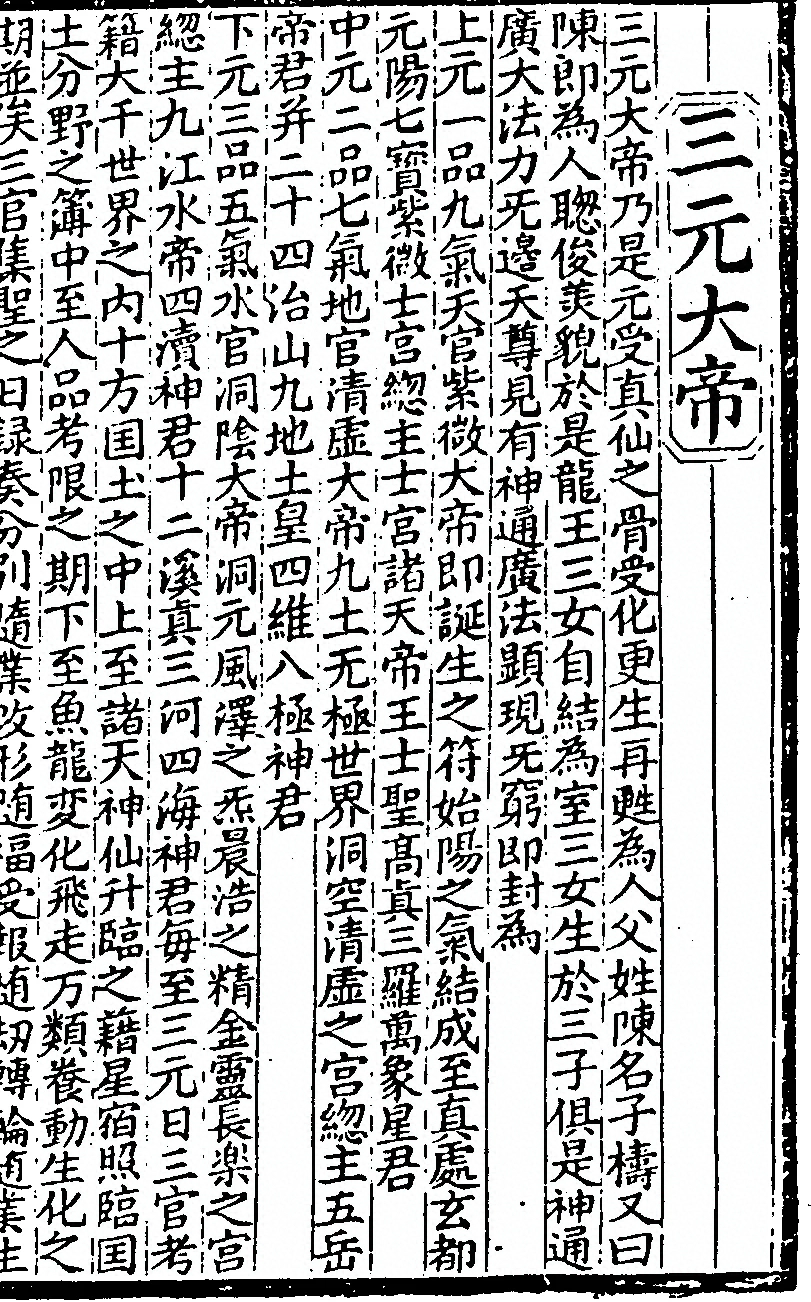 三元大帝
三元大帝乃是元受真仙之骨受化更生再甦為人父姓陳名子檮又曰
陳即為人聦俊羙貌於是龍王三女自結為室三女生於三子俱是神通
廣大法力旡邊天尊見有神通廣法顯現旡窮即封為
上元一品九氣天官紫微大帝即誕生之符始陽之氣結成至真處玄都
元陽七寳紫微士宮緫主士宮諸天帝王士聖髙眞三羅萬象星君
中元二品七氣地官清虛大帝九土无極世界洞空清虛之宮緫主五岳
帝君并二十四治山九地土皇四維八極神君
下元三品五氣水官洞陰大帝洞元風澤之炁晨浩之精金靈長楽之宮
緫主九江水帝四瀆神君十二溪真三河四海神君每至三元日三官考
籍大千世界之内十方囯土之中上至諸天神仙升臨之籍星宿照臨囯
土分野之簿中至人品考限之期下至魚龍変化飛走万類養動生化之
期並俟三官集聖之日録奏分別隨業改形随福受報随刼轉輪隨業生